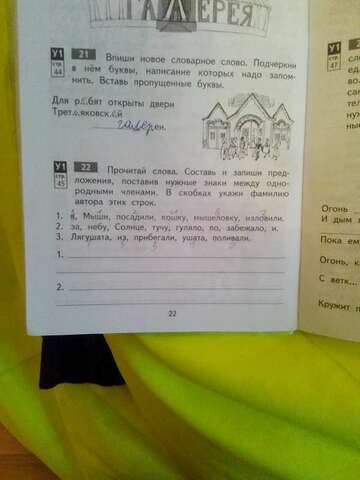 ГАЛЕРЕЯ
У1 21 Впиши новое словарное слово. Подчеркни
стр. 44 в нём буквы, написание которых надо запом-
нить. Вставь пропущенные буквы.
Для р..бят открыты двери
Трет..яковск..й
галереи.
У1 22 Прочитай слова. Составь и запиши пред-
стр. 45 ложения, поставив нужные знаки между одно-
родными членами. В скобках укажи фамилию
автора этих строк.
1. в, Мыши, посадили, кошку, мышеловку, изловили.
2. за, небу, Солнце, тучу, гуляло, по, забежало, и.
3. Лягушата, из, прибегали, ушата, поливали.
1.
2.
22
У1
стр. 47
Огонь
И дым
Пока ем
Огонь,
С ветк...
Кружит